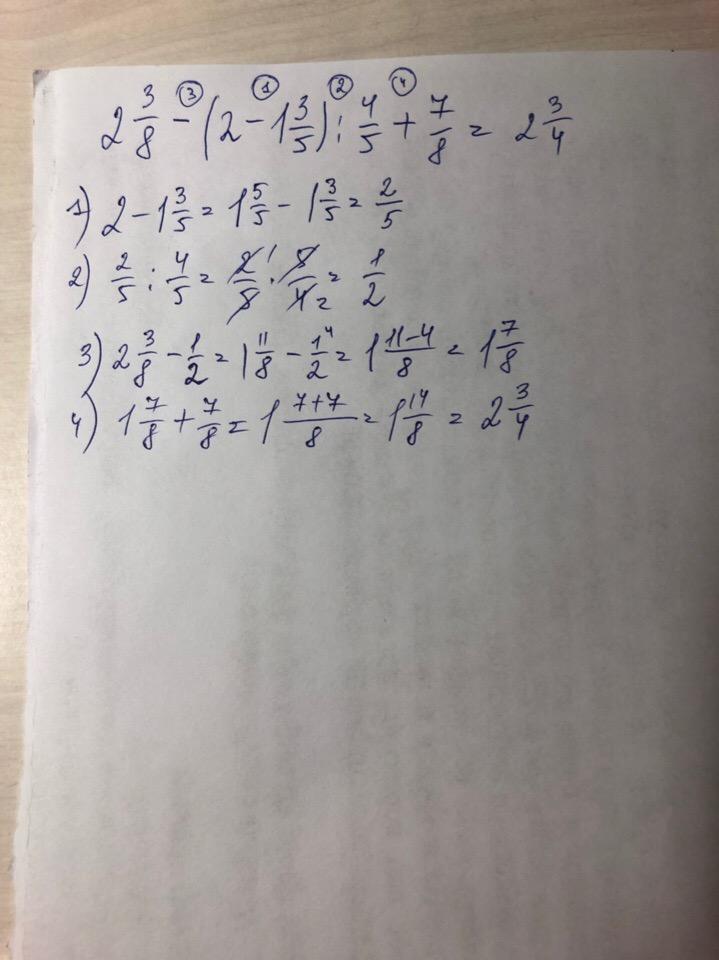 ③ ① ② ④
2 3/8 - (2 - 1 3/5) : 4/5 + 7/8 = 2 3/4
1) 2 - 1 3/5 = 1 5/5 - 1 3/5 = 2/5
2) 2/5 : 4/5 = 2¹/5 · 5/4₂ = 1/2
3) 2 3/8 - 1/2 = 1 11/8 - 1⁴/2 = 1 11-4/8 = 1 7/8
4) 1 7/8 + 7/8 = 1 7+7/8 = 1 14/8 = 2 3/4